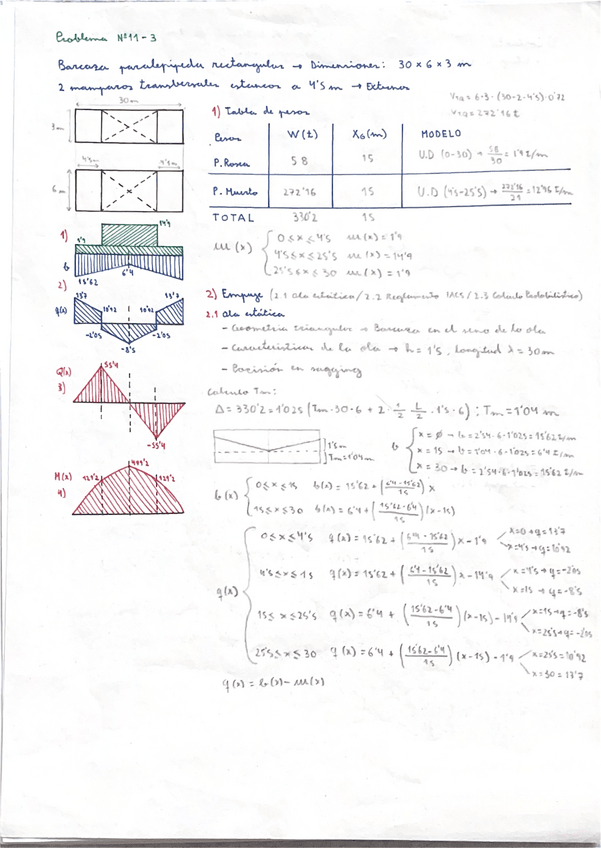 Problema Nº11-3
Barcaza paralepípeda rectangular → Dimensiones: 30 x 6 x 3 m
2 mamparos transversales estancos a 4'5 m → Extremos
VTQ = 6·3·(30-2·4'5)·0'72
VTQ = 272'16 t
30 m
3m
4'5m
4'5m
6m
1) Tabla de pesos
Pesos W(t) XG(m) MODELO
P. Rosca 58 15 U.D (0-30) → 58/30 = 1'9 t/m
P. Muerto 272'16 15 U.D (4'5-25'5) → 272'16/21 = 12'96 t/m
TOTAL 330'2 15
m(x) { 0≤x≤4'5 m(x) = 1'9
4'5≤x≤25'5 m(x) = 14'9
25'5≤x≤30 m(x) = 1'9
1)
1'9
14'9
b
15'62
6'4
2)
q(x)
13'7
10'92
10'92
13'7
-2'05
-2'05
-8'5
Q(x)
3)
55'4
-55'4
M(x)
4)
2) Empuje (2.1 Ola estática / 2.2 Reglamento IACS / 2.3 Cálculo Probabilístico)
2.1 Ola estática
- Geometría triangular → Barcaza en el seno de la ola
- Características de la ola → h = 1'5, longitud λ = 30m
- Posición en sagging
Cálculo Tm:
Δ = 330'2 = 1'025 (Tm·30·6 + 2·1/2·L/2·1'5·6) : Tm = 1'04 m
1'5m
Tm=1'04m
b { x = ø → b = 2'54·6·1'025 = 15'62 t/m
x = 15 → b = 1'04·6·1'025 = 6'4 t/m
x = 30 → b = 2'54·6·1'025 = 15'62 t/m
b(x) { 0≤x≤15 b(x) = 15'62 + ((6'4-15'62)/15) x
15≤x≤30 b(x) = 6'4 + ((15'62-6'4)/15) (x-15)
q(x) { 0≤x≤4'5 q(x) = 15'62 + ((6'4-15'62)/15) x - 1'9 x=0→q=13'7
x=4'5→q=10'92
4'5≤x≤15 q(x) = 15'62 + ((6'4-15'62)/15) x - 14'9 x=4'5→q=-2'05
x=15→q=-8'5
15≤x≤25'5 q(x) = 6'4 + ((15'62-6'4)/15) (x-15) - 14'9 x=15→q=-8'5
x=25'5→q=-2'05
25'5≤x≤30 q(x) = 6'4 + ((15'62-6'4)/15) (x-15) - 1'9 x=25'5=10'92
x=30=13'7
q(x) = b(x) - m(x)